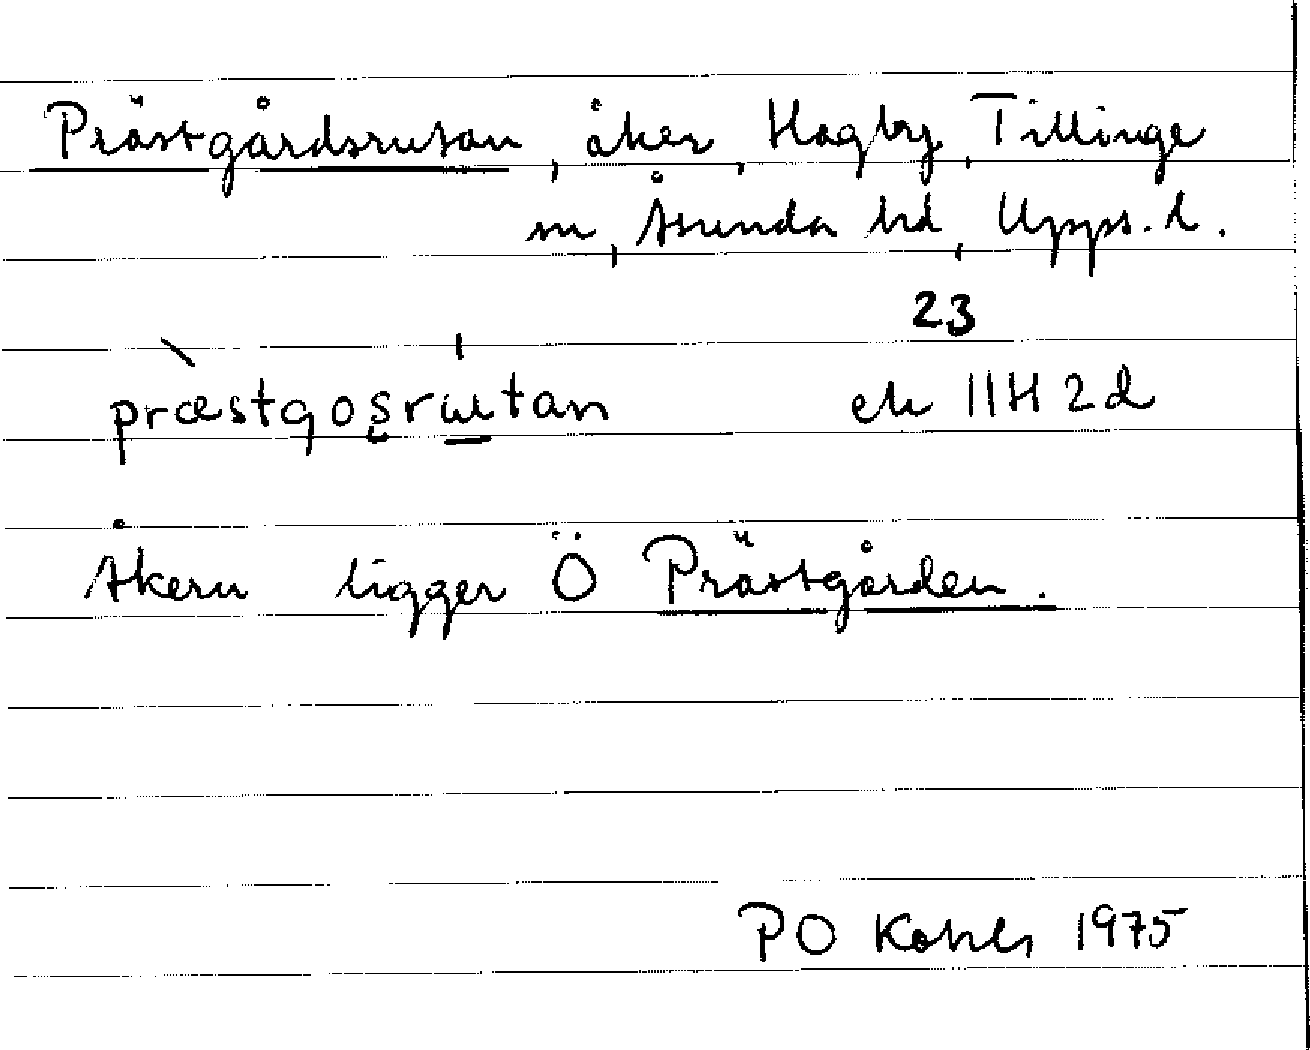 Prästgårdsrutan, åker, Hagby, Tillinge
sn, Åsunda hd, Upps. l.
23
præstgosrutan ek 11H 2d
Åkern ligger Ö Prästgården.
PO 1975